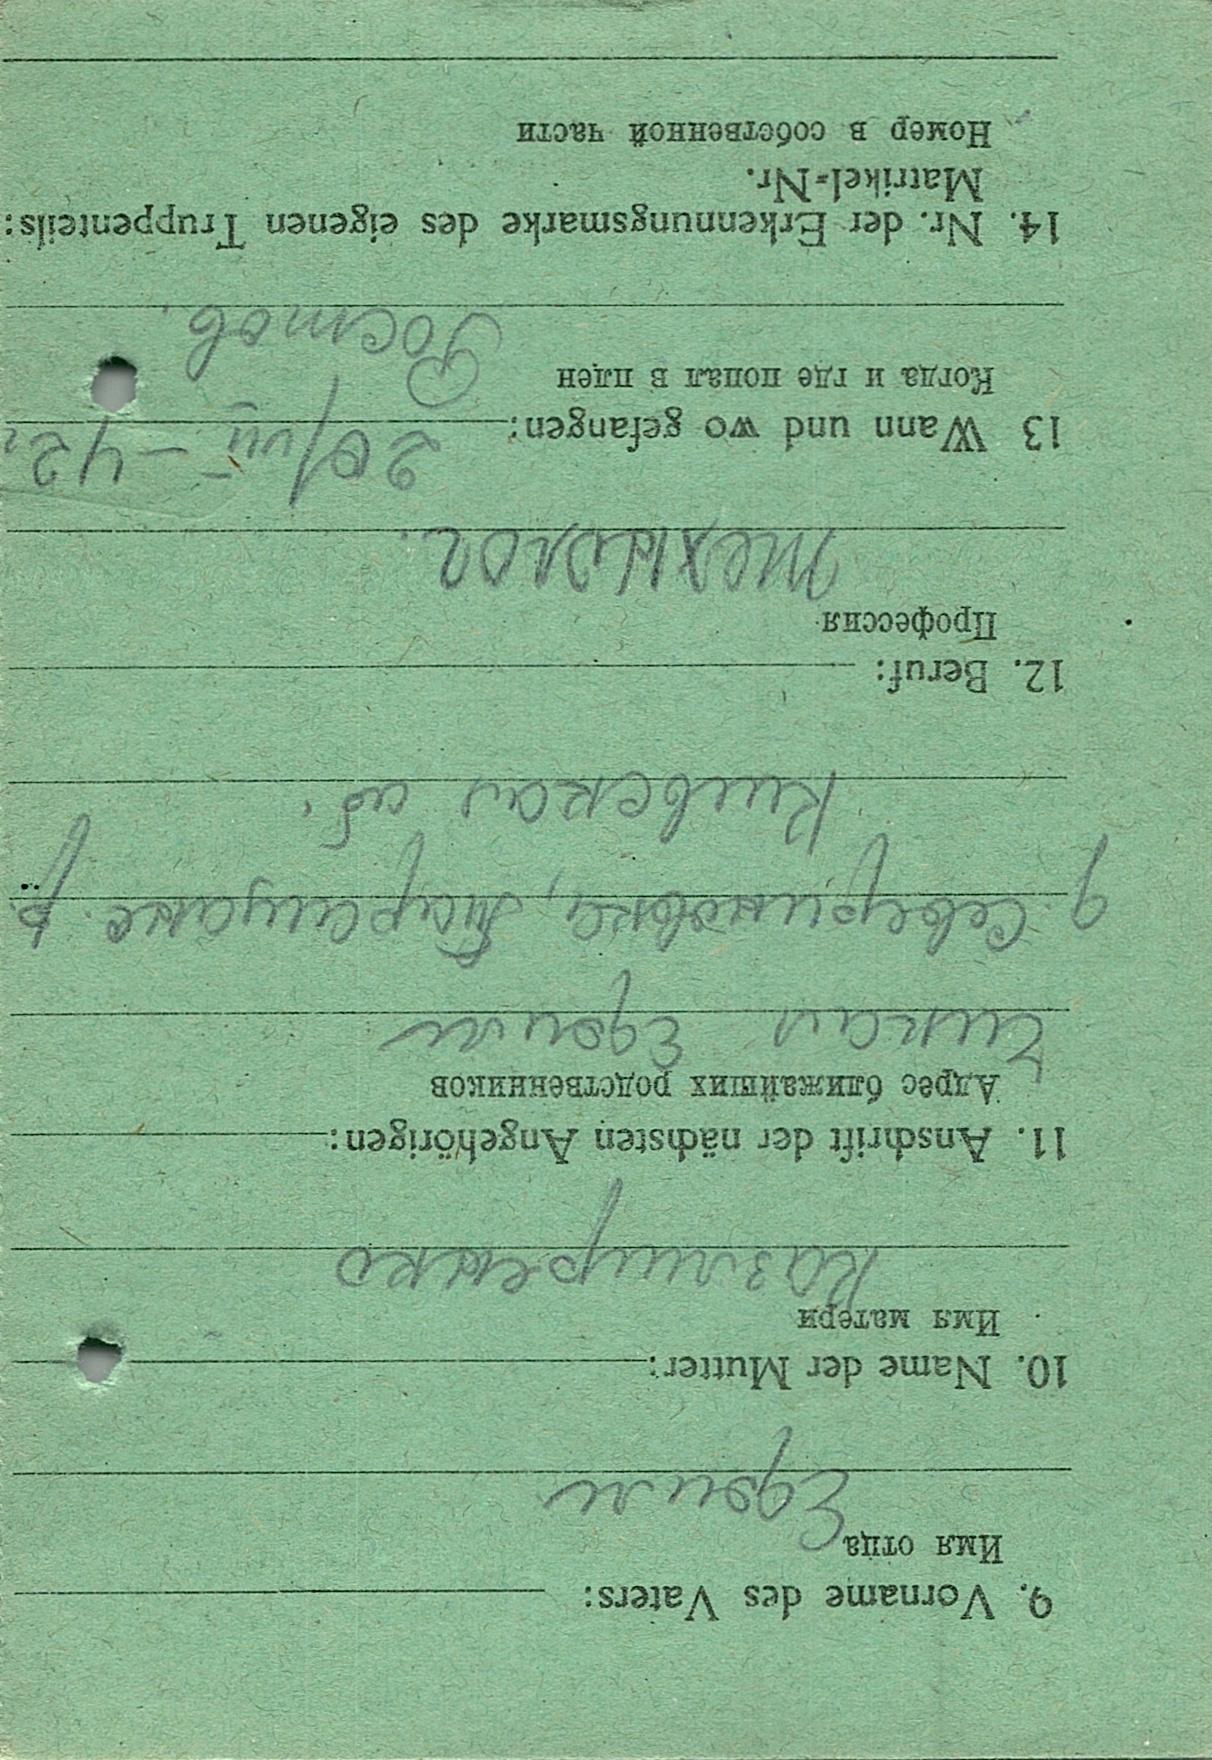 9. Vorname des Vaters:
Имя отца
Ефим
10. Name der Mutter:
Имя матери
Казмиренко
11. Anschrift der nächsten Angehörigen:
Адрес ближайших родственников
Ефим
д. Севериновка, Таращанс. р.
Киевская об.
12. Beruf:
Профессия
13 Wann und wo gefangen:
20/VII – 42
Когда и где попал в плен
Ростов.
14. Nr. der Erkennungsmarke des eigenen Truppenteils:
Matrikel-Nr.
Номер в собственной части